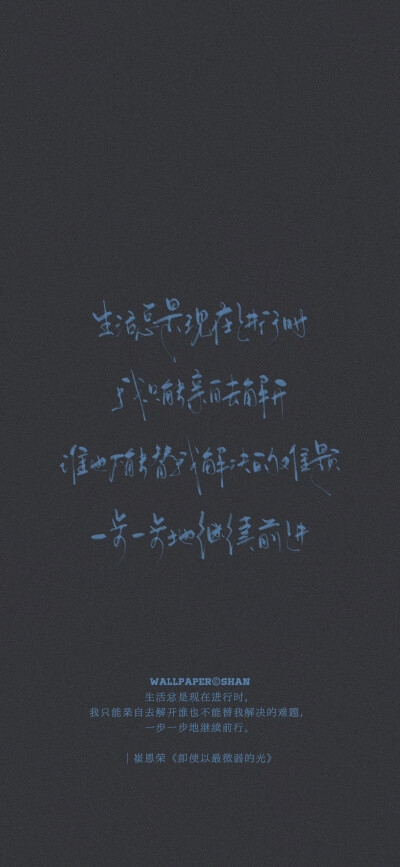 生活总是现在进行时
我只能亲自去解开
谁也不能替我解决的难题
一步一步地继续前进
WALLPAPER©SHAN
生活总是现在进行时,
我只能亲自去解开谁也不能替我解决的难题,
一步一步地继续前行。
|崔恩荣《即使以最微弱的光》